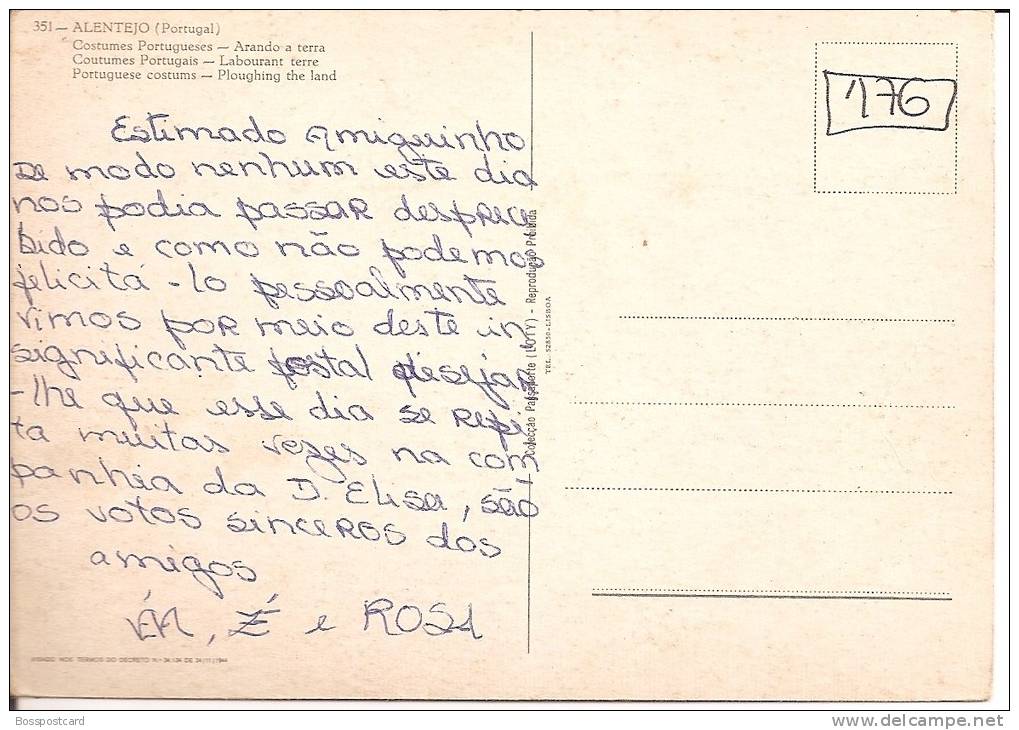 351 — ALENTEJO (Portugal)
Costumes Portugueses — Arando a terra
Coutumes Portugais — Labourant terre
Portuguese costums — Ploughing the land
176
Estimado Amiguinho
De modo nenhum este dia
nos podia passar desprece
bido e como não podemos
felicitá-lo pessoalmente
vimos por meio deste in
significante postal desejar
-lhe que esse dia se repi
ta muitas vezes na com
panhia da D. Elisa, são
os votos sinceros dos
amigos
e ROSA
Colecção Passaporte (LOTY) - Reprodução Proibida
TEL. 52850-LISBOA
VISADO NOS TERMOS DO DECRETO N.º 34.134 DE 24/11/1944
Bosspostcard
www.delcampe.net